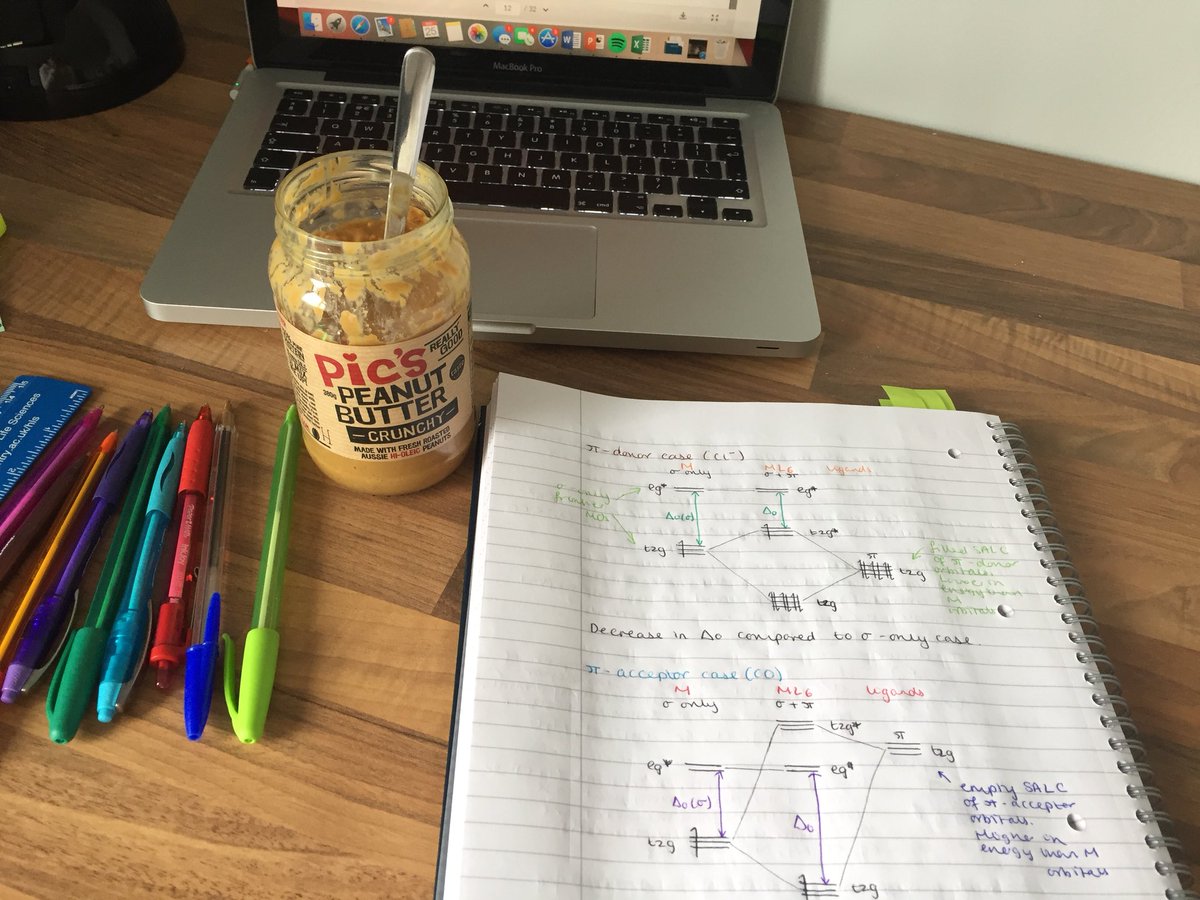 12 / 32
25
MacBook Pro
REALLY
GOOD
PiC'S
380g PEANUT
BUTTER
CRUNCHY
MADE WITH FRESH ROASTED
AUSSIE HI-OLEIC PEANUTS
Life Sciences
try.ac.uk/hls
π-donor case (Cl⁻)
M ML6 ligands
σ only σ + π
σ-only
frontier
MOs
eg* eg*
Δo(σ) Δo
t2g t2g*
π
t2g
t2g
filled SALC
of π-donor
orbitals.
Lower in
energy than
M
orbitals
Decrease in Δo compared to σ-only case.
π-acceptor case (CO)
M ML6 ligands
σ only σ + π
t2g*
π
t2g
eg* eg*
Δo(σ)
Δo
t2g
t2g
empty SALC
of π-acceptor
orbitals.
Higher in
energy than M
orbitals